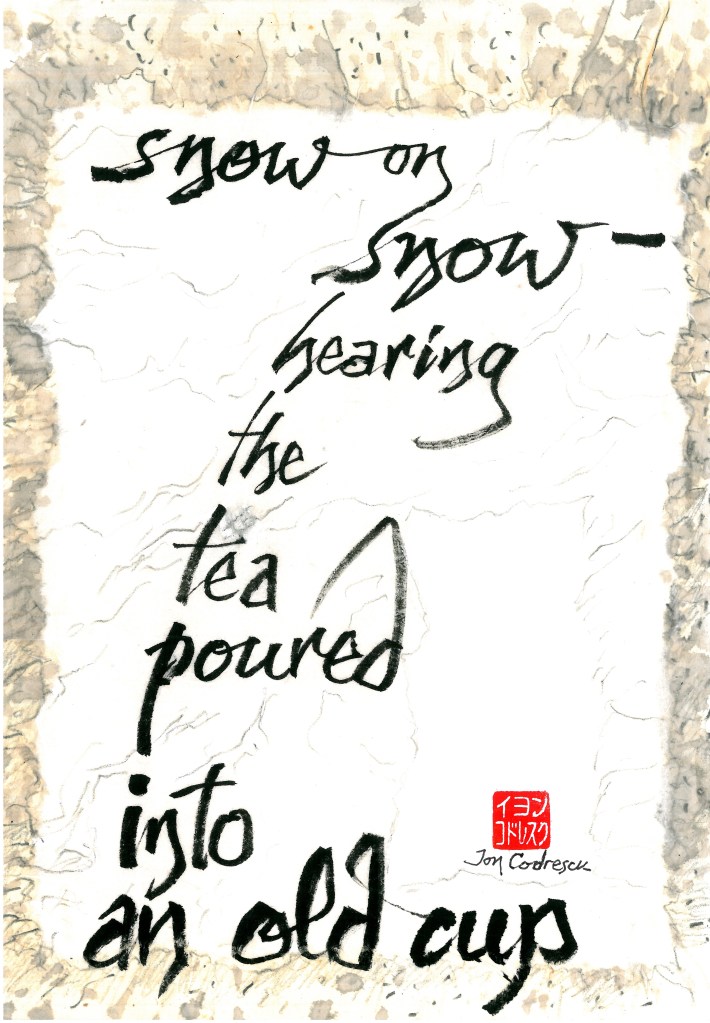 snow on
snow –
hearing
the
tea
poured
into
an old cup
イヨン
コドレスク
Ion Codrescu